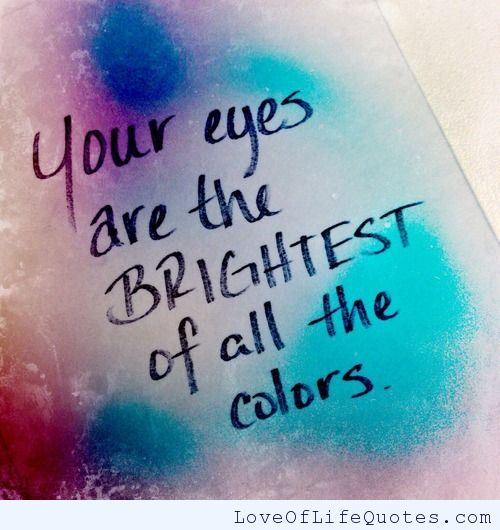 Your eyes
are the
BRIGHTEST
of all the
colors.
LoveOfLifeQuotes.com